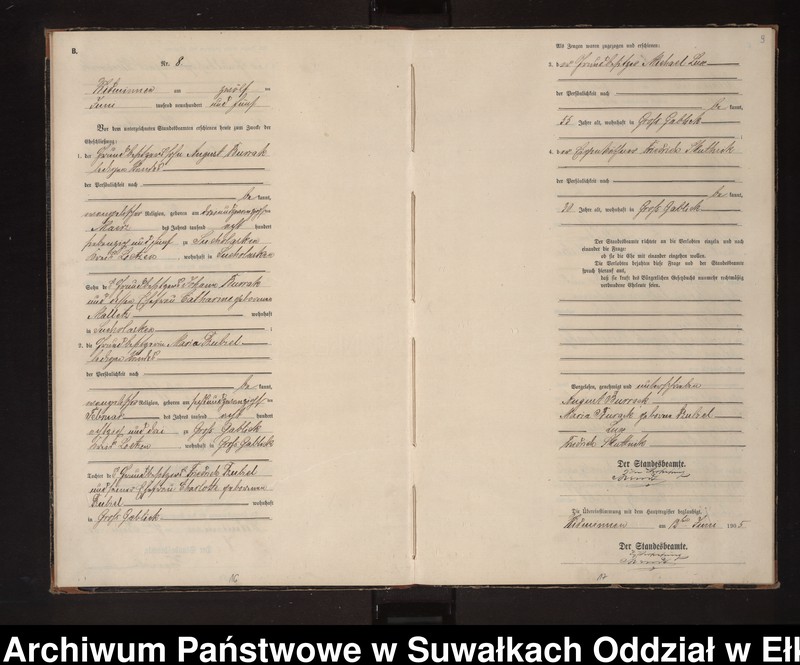 B.
Nr. 8
Widminnen am zwölf ten
Juni tausend neunhundert und fünf
Vor dem unterzeichneten Standesbeamten erschienen heute zum Zwecke der
Eheschließung:
1. der Grundbesitzersohn August
ledigen Standes
der Persönlichkeit nach
be kannt,
evangelischer Religion, geboren am dreiundzwanzigsten
März des Jahres tausend acht hundert
siebenzig und fünf zu Sucholasken
Kreis Loetzen wohnhaft in Sucholasken
Sohn des Grundbesitzers Johann
und dessen Ehefrau Catharine geborene
Mallek wohnhaft
in Sucholasken
2. die Grundbesitzerin Maria
ledigen Standes
der Persönlichkeit nach
be kannt,
evangelischer Religion, geboren am sechsundzwanzigsten
Februar des Jahres tausend acht hundert
achtzig und drei zu Groß Gablick
Kreis Loetzen wohnhaft in Groß Gablick
Tochter des Grundbesitzers Friedrich
und seiner Ehefrau Charlotte geborene
wohnhaft
in Groß Gablick
9
Als Zeugen waren zugezogen und erschienen:
3. der Grundbesitzer Michael Lux
der Persönlichkeit nach
be kannt,
55 Jahre alt, wohnhaft in Groß Gablick
4. der Eigenkäthner Friedrich
der Persönlichkeit nach
be kannt,
30 Jahre alt, wohnhaft in Groß Gablick
Der Standesbeamte richtete an die Verlobten einzeln und nach
einander die Frage:
ob sie die Ehe mit einander eingehen wollen.
Die Verlobten bejahten diese Frage und der Standesbeamte
sprach hierauf aus,
daß sie kraft des Bürgerlichen Gesetzbuchs nunmehr rechtmäßig
verbundene Eheleute seien.
Vorgelesen, genehmigt und unterschrieben
August
Maria geborene
Lux
Friedrich
Der Standesbeamte.
In Vertretung
Die Übereinstimmung mit dem Hauptregister beglaubigt.
Widminnen am 12ten Juni 1905
Der Standesbeamte.
In Vertretung
Archiwum Państwowe w Suwałkach Oddział w Ełk